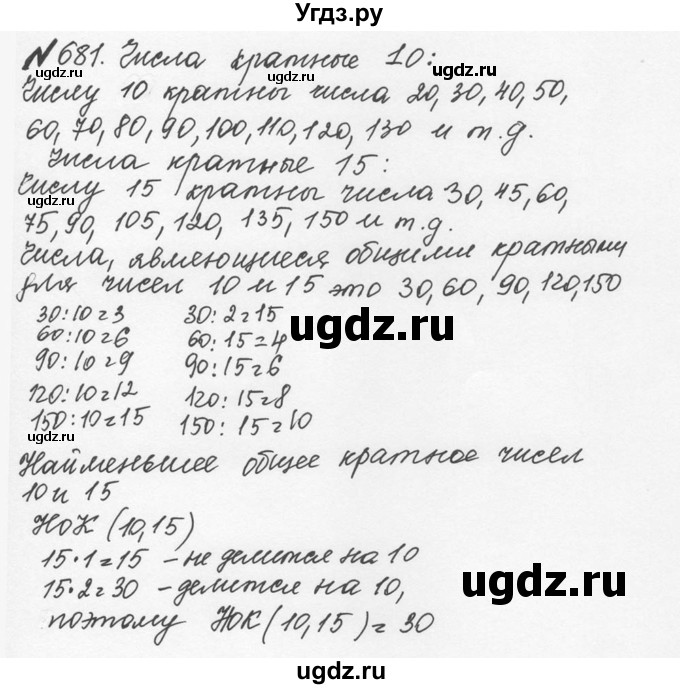 Угдз.ру
№681. Числа кратные 10:
Числу 10 кратны числа 20, 30, 40, 50,
60, 70, 80, 90, 100, 110, 120, 130 и т.д.
Числа кратные 15:
Числу 15 кратны числа 30, 45, 60,
75, 90, 105, 120, 135, 150 и т.д.
Числа, являющиеся общими кратными
для чисел 10 и 15 это 30, 60, 90, 120, 150
30:10=3 30:2=15
60:10=6 60:15=4
90:10=9 90:15=6
120:10=12 120:15=8
150:10=15 150:15=10
Найменьшее общее кратное чисел
10 и 15
НОК (10,15)
15·1=15 – не делится на 10
15·2=30 – делится на 10,
поэтому НОК (10,15) = 30
ugdz.ru
ugdz.ru
ugdz.ru
ugdz.ru
ugdz.ru
ugdz.ru
ugdz.ru
ugdz.ru
ugdz.ru